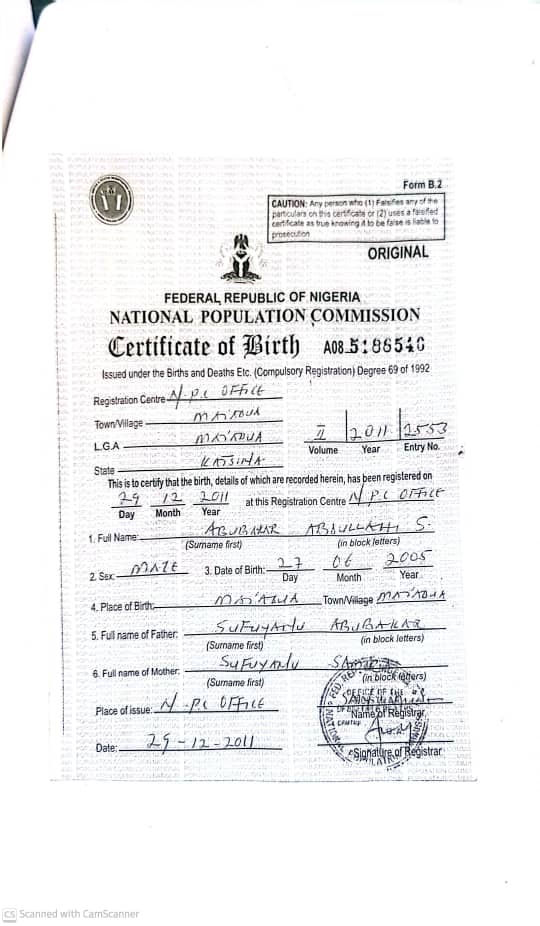 Form B.2
CAUTION: Any person who (1) Falsifies any of the
particulars on this certificate or (2) uses a falsified
certificate as true knowing it to be false is liable to
prosecution
ORIGINAL
FEDERAL REPUBLIC OF NIGERIA
NATIONAL POPULATION COMMISSION
Certificate of Birth A08 5186540
Issued under the Births and Deaths Etc. (Compulsory Registration) Degree 69 of 1992
Registration Centre N.P.C OFFICE
Town/Village MAI'ADUA
L.G.A MAI'ADUA II 2011 2553
Volume Year Entry No.
State KATSINA
This is to certify that the birth, details of which are recorded herein, has been registered on
29 12 2011 at this Registration Centre N.P.C OFFICE
Day Month Year
1. Full Name: ABUBAKAR ABDULLAHI S.
(Surname first) (in block letters)
2. Sex: MALE 3. Date of Birth: 27 06 2005
Day Month Year
4. Place of Birth: MAI'ADUA Town/Village MAI'ADUA
5. Full name of Father: SUFUYANU ABUBAKAR
(Surname first) (in block letters)
6. Full name of Mother: SUFUYANU
(Surname first) (in block letters)
Place of issue: N.P.C OFFICE Name of Registrar
Date: 29-12-2011
Signature of Registrar
CS Scanned with CamScanner